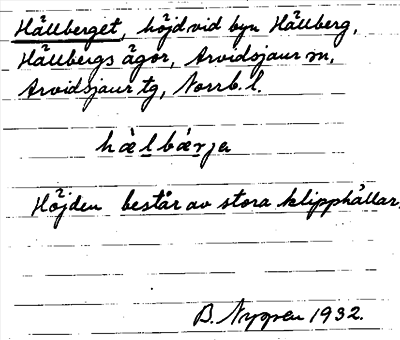 Hällberget, höjd vid byn Hällberg,
Hällbergs ägor, Arvidsjaur sn,
Arvidsjaur tg, Norrb. l.
hälbärja
Höjden består av stora klipphällar.
B. Nygren 1932.